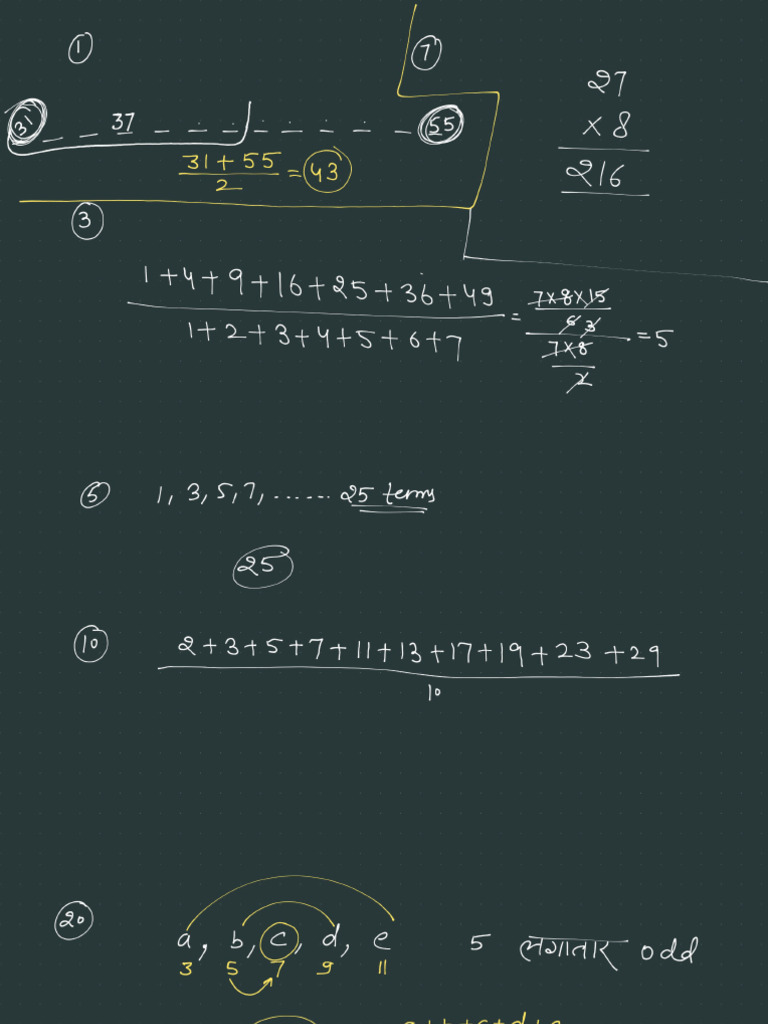 ①
31 _ _ 37 _ _ _ _ _ _ _ _ 55
31 + 55 / 2 = 43
⑦
27
× 8
216
③
1 + 4 + 9 + 16 + 25 + 36 + 49 / 1 + 2 + 3 + 4 + 5 + 6 + 7 = 7×8×15 / 6 3 / 7×8 / 2 = 5
⑤ 1, 3, 5, 7, ...... 25 terms
25
⑩ 2 + 3 + 5 + 7 + 11 + 13 + 17 + 19 + 23 + 29
10
⑳ a, b, c, d, e 5 लगातार odd
3 5 7 9 11